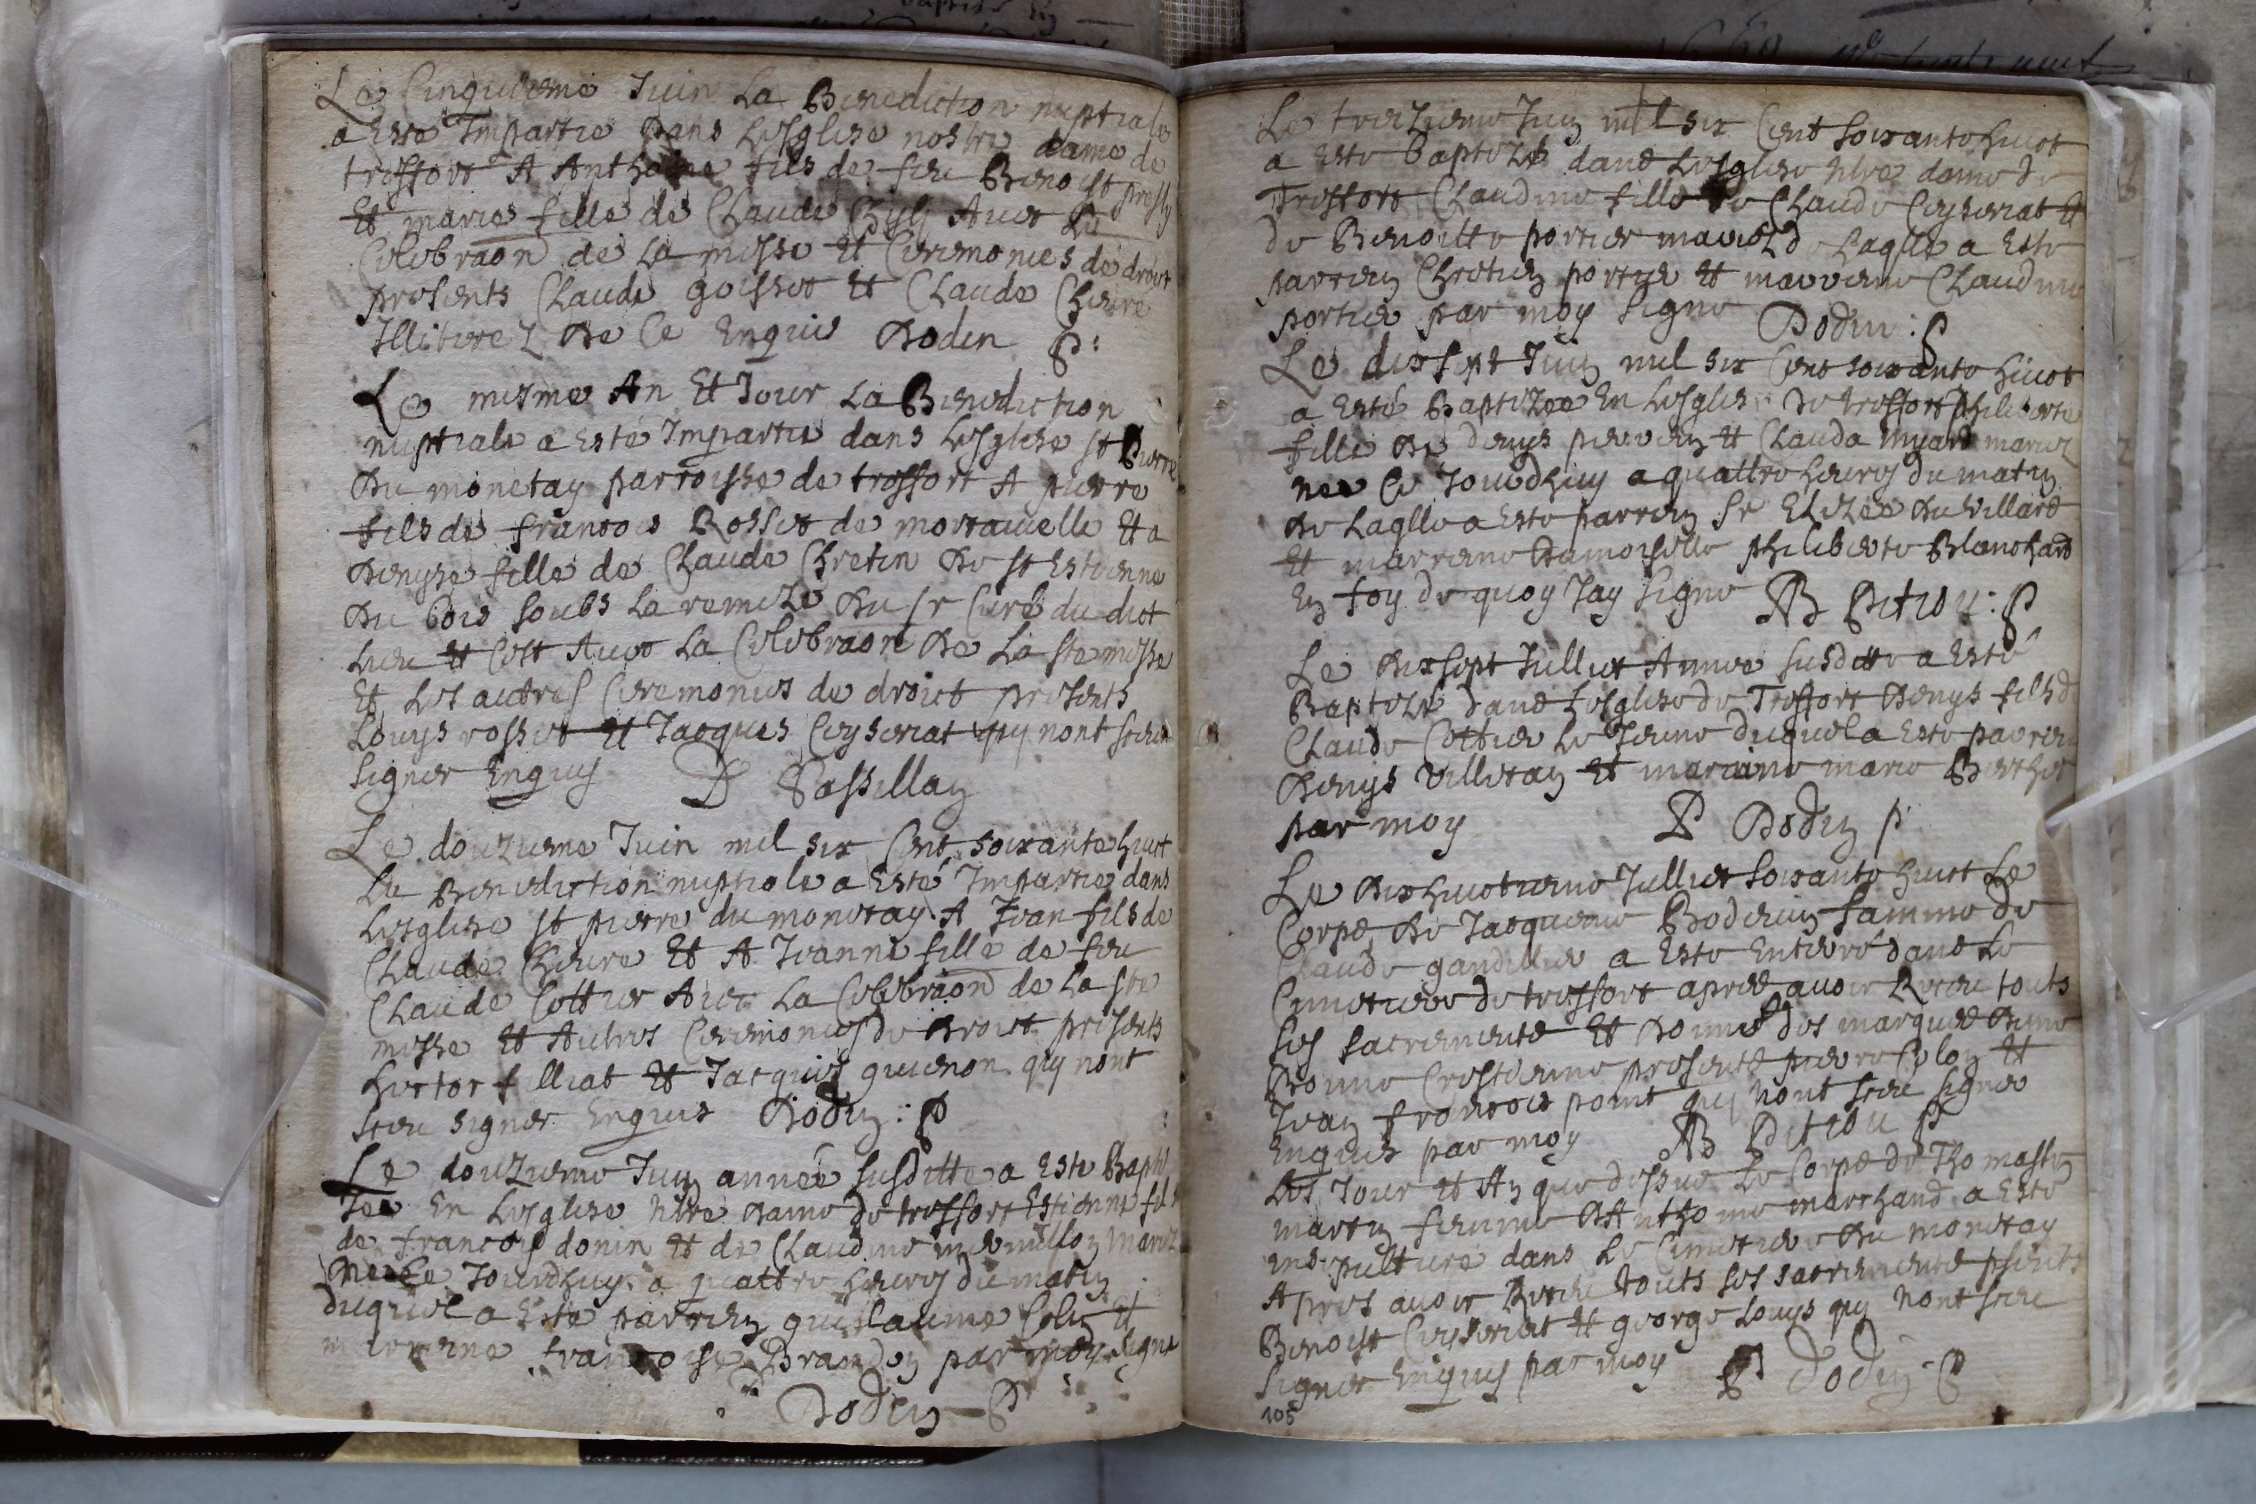 Le Cinquieme Juin La Benediction nuptiale
a Esté Impartie Dans Lesglize nostre dame de
treffort A Anthoine fils de feu Benoist
Et marie fille de Claude Avec La
Celebraon de La messe Et Ceremonies de droit
presents Claude goisset Et Claude Chevre
Illiterez De Ce Enquis Dodin P:
Le mesme An Et Jour La Benediction
nuptiale a Esté Impartie dans Lesglize st Pierre
Du monetay parroisse de treffort A pierre
fils de francois Rosset de Et a
Denyse fille de Claude Chretin De st Estienne
Du bois soubs La remize Du sr Curé du dict
Lieu Et Cest Avec La Celebraon De La ste messe
Et Les autres Ceremonies de droict presents
Louys rosset Et Jacques Ceyseriat qui nont sceu
signer Enquis D Sassillay
Le douzieme Juin mil six Cent soixante huict
La Benediction nuptiale a Esté Impartie dans
Lesglize st pierre du monetay A Jean fils de
Claude Chevre Et A Jeanne fille de feu
Claude Cottier Avec La Celebraon de La ste
messe Et Autres Ceremonies de Droict presents
hector filliat Et Jacques guienon qui nont
sceu signer Enquis Dodin : P
Le douzieme Juin année susditte a Esté Bapti
zee En Lesglize nlre dame de treffort Estienne fils
de francois donin Et de Claudine mariez
Jourdhuy a quattre heures du matin
duquel a Esté parrein guillaume Et
marreine francoise Brandon par moy signe
Dodin P
Le treizieme Juin mil six Cent soixante huict
a Esté baptizé dans Lesglize nlre dame de
Treffort Claudine fille de Claude Ceyseriat Et
de Benoitte portier mariez de Laqlle a Esté
parrein Chretien portier Et marreine Claudine
portier par moy signe Dodin : P
Le dixsept Juin mil six Cent soixante huict
a Esté Baptizee En Lesglize De treffort philiberte
fille De denys Et Clauda myard mariez
nee Ce Jourdhuy a quattre heures du matin
De Laqlle a Esté parrein sr Elizee Du Villard
Et marreine Damoiselle philiberte Blanchard
En foy de quoy Jay signe AB Pitiou : P
Le Dixsept Jullet Année susditte a Esté
Baptizé dans Lesglize de Treffort Denys fils de
Claude Cottier Le Jeune duquel a Esté parrein
Denys Villetay Et marreine marie Berthet
par moy P Dodin p
Le Dixhuictieme Jullet soixante huict Le
Corps De Jacqueme Boderin famme de
Claude gandillier a Esté Enterré dans Le
Cimetiere de treffort apres avoir Receu touts
ses sacrements Et Donné des marques Dune
Bonne Crestienne presents pierre Colon Et
Jean francois point qui nont sceu signer
Enquis par moy AB Pitiou P
Les Jour Et An que dessus Le Corps de Thomasse
martin feme DAnthoine marchand a Esté
dans Le Cimetiere Du monetay
Apres avoir Receu touts ses sacrements psents
Benoist Ceyseriat Et george Louys qui nont sceu
signer Enquis par moy P Dodin P
105